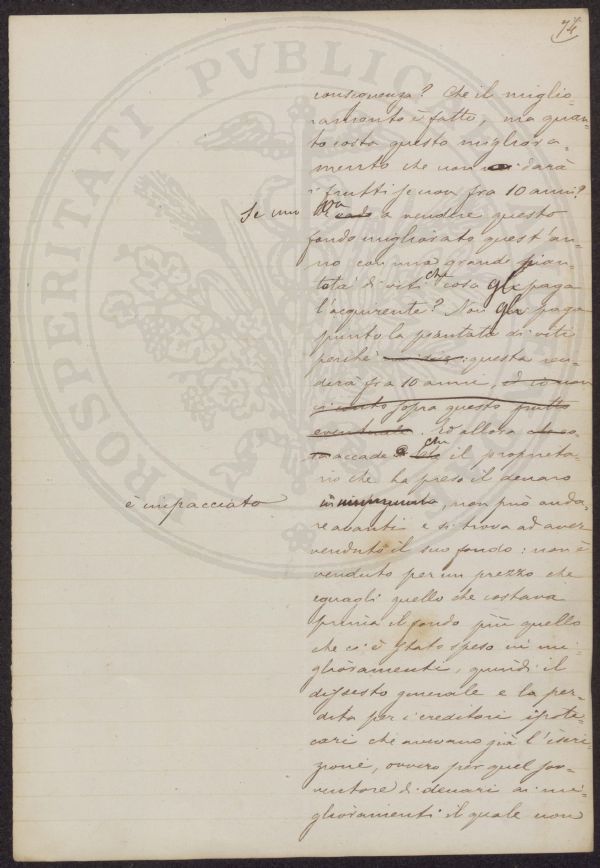 74
PROSPERITATI PVBLICAE
consequenza? Che il miglio-
ramento è fatto, ma quan-
to costa questo migliora-
mento che non darà
i frutti se non fra 10 anni?
Se uno va a vendere questo
fondo migliorato quest'an-
no con una grande pian-
tata di viti che cosa gli paga
l'acquirente? Non gli paga
punto la piantata di viti
perchè questa ren-
derà fra 10 anni, ed io non
ci conto sopra questo frutto
eventuale. Ed allora che co-
sa accade che il proprieta-
rio che ha preso il denaro
è impacciato, non può anda-
re avanti e si trova ad aver
venduto il suo fondo: non è
venduto per un prezzo che
eguagli quello che costava
prima il fondo più quello
che ci è stato speso in mi-
glioramenti, quindi il
dissesto generale e la per-
dita per i creditori ipote-
cari che avevano già l'iscri-
zione, ovvero per quel sov-
ventore di denari ai mi-
glioramenti il quale non